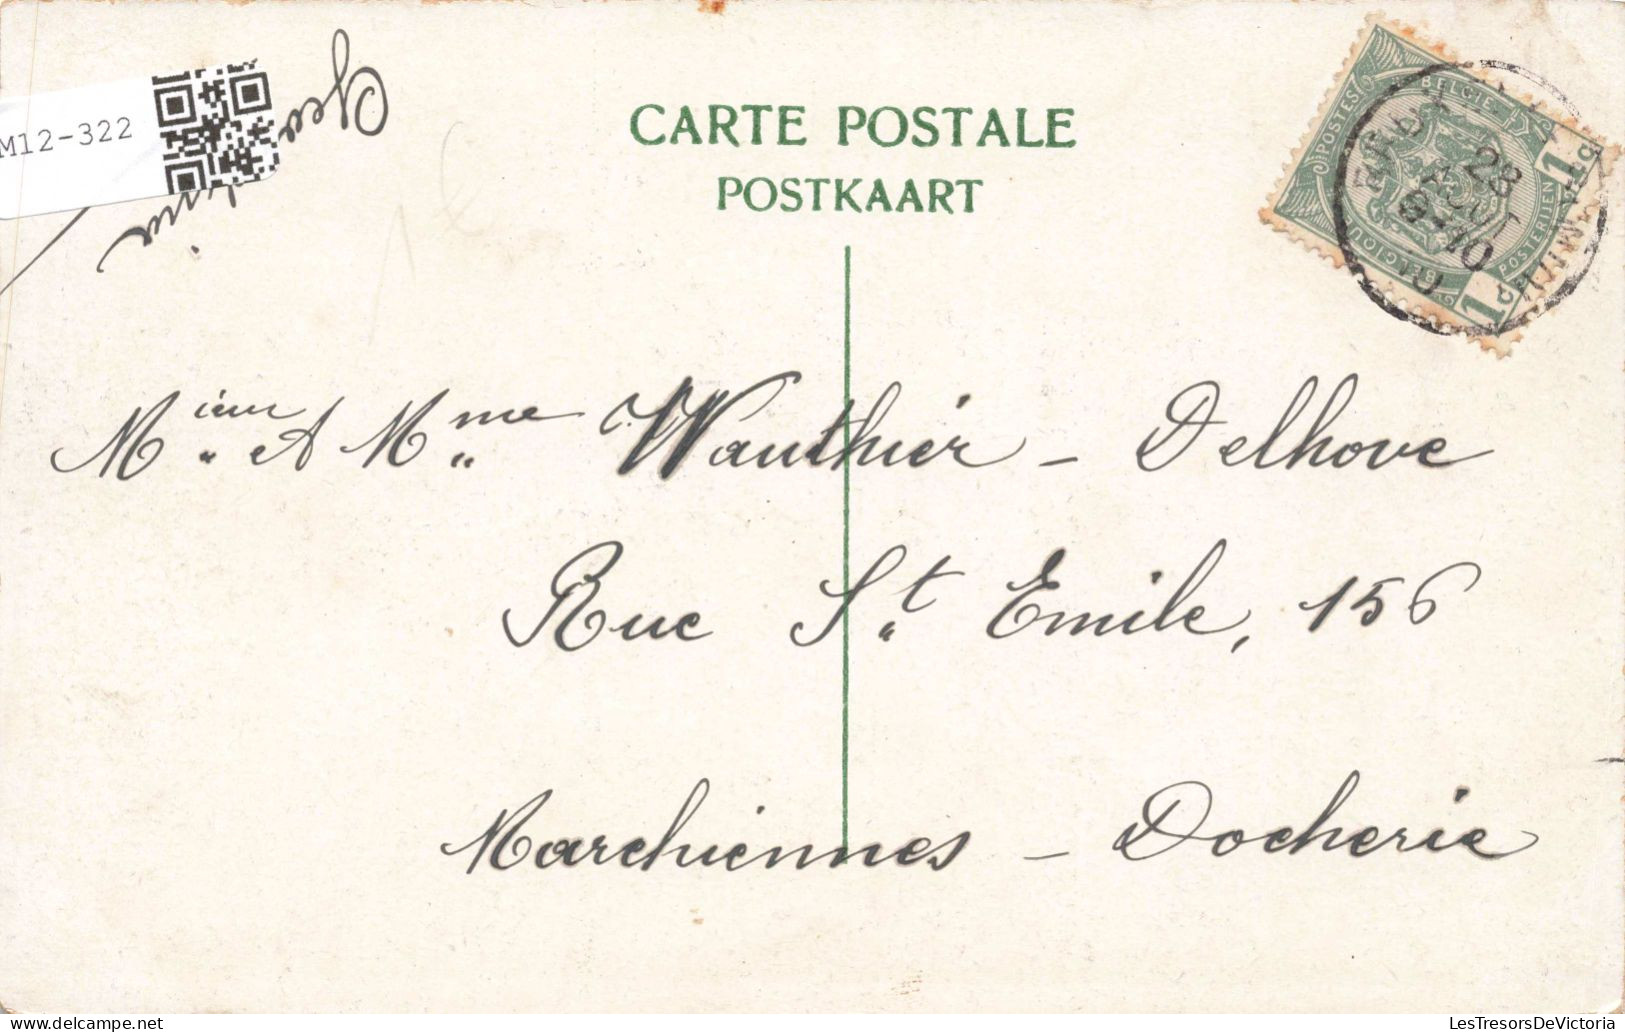 M12-322
CARTE POSTALE
POSTKAART
POSTES BELGIE
1c POSTERIJEN 1c
28
AOUT
10
Mieur et Mme Wauthier - Delhove
Rue St Emile, 156
Marchiennes - Docherie
LesTresorsDeVictoria